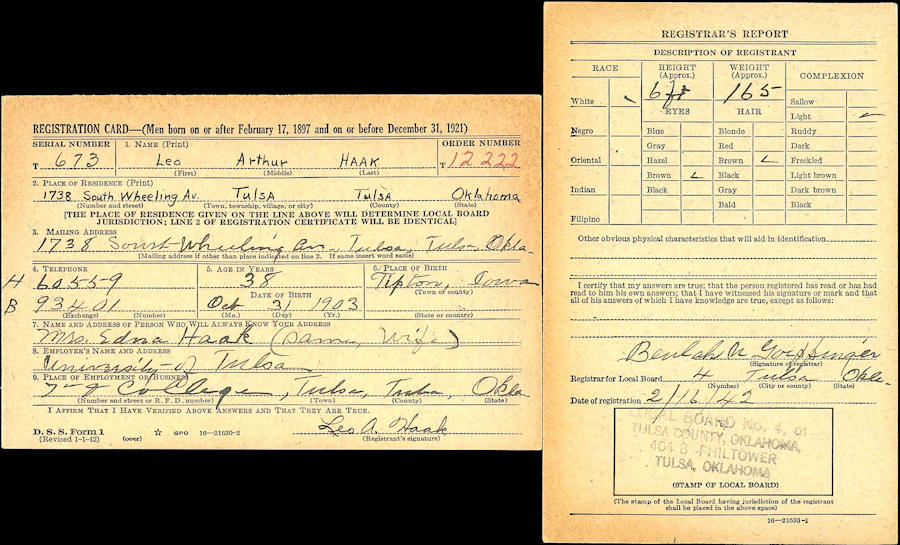 REGISTRATION CARD—(Men born on or after February 17, 1897 and on or before December 31, 1921)
SERIAL NUMBER 1. NAME (Print) ORDER NUMBER
T 673 Leo Arthur HAAK T 12222
(First) (Middle) (Last)
2. PLACE OF RESIDENCE (Print)
1738 South Wheeling Av. TULSA TULSA Oklahoma
(Number and street) (Town, township, village, or city) (County) (State)
[THE PLACE OF RESIDENCE GIVEN ON THE LINE ABOVE WILL DETERMINE LOCAL BOARD
JURISDICTION; LINE 2 OF REGISTRATION CERTIFICATE WILL BE IDENTICAL]
3. MAILING ADDRESS
1738 South Wheeling Av., Tulsa, Tulsa, Okla
[Mailing address if other than place indicated on line 2. If same insert word same]
4. TELEPHONE 5. AGE IN YEARS 6. PLACE OF BIRTH
H 60559 38 Tipton, Iowa
DATE OF BIRTH (Town or county)
B 93401 Oct 31 1903
(Exchange) (Number) (Mo.) (Day) (Yr.) (State or country)
7. NAME AND ADDRESS OF PERSON WHO WILL ALWAYS KNOW YOUR ADDRESS
Mrs. Edna Haak (Same, Wife)
8. EMPLOYER'S NAME AND ADDRESS
University of Tulsa
9. PLACE OF EMPLOYMENT OR BUSINESS
7th & College, Tulsa, Tulsa, Okla
(Number and street or R. F. D. number) (Town) (County) (State)
I AFFIRM THAT I HAVE VERIFIED ABOVE ANSWERS AND THAT THEY ARE TRUE.
Leo A. Haak
D. S. S. Form 1
(Revised 1-1-42) (over) ☆ GPO 16—21630-2 (Registrant's signature)
REGISTRAR'S REPORT
DESCRIPTION OF REGISTRANT
RACE HEIGHT (Approx.) WEIGHT (Approx.) COMPLEXION
6 ft 165
White EYES HAIR Sallow
Light
Negro Blue Blonde Ruddy
Gray Red Dark
Oriental Hazel Brown Freckled
Brown Black Light brown
Indian Black Gray Dark brown
Bald Black
Filipino
Other obvious physical characteristics that will aid in identification
I certify that my answers are true; that the person registered has read or has had
read to him his own answers; that I have witnessed his signature or mark and that
all of his answers of which I have knowledge are true, except as follows:
Beulah
(Signature of registrar)
Registrar for Local Board 4 Tulsa Okla.
(Number) (City or county) (State)
Date of registration 2/16/42
LOCAL BOARD No. 4, of
TULSA COUNTY, OKLAHOMA,
404 B PHILTOWER
TULSA, OKLAHOMA
(STAMP OF LOCAL BOARD)
(The stamp of the Local Board having jurisdiction of the registrant
shall be placed in the above space)
16—21630-1